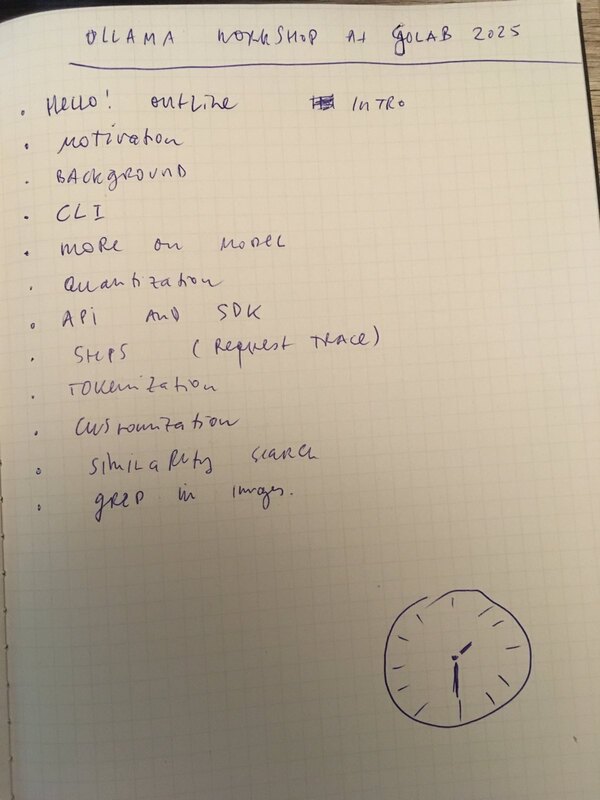 OLLAMA WORKSHOP AT GOLAB 2025
• Hello! outline INTRO
• Motivation
• Background
• CLI
• More on Model
• Quantization
• API AND SDK
• Steps (Request Trace)
• Tokenization
• Customization
• Similarity search
• grep in images.